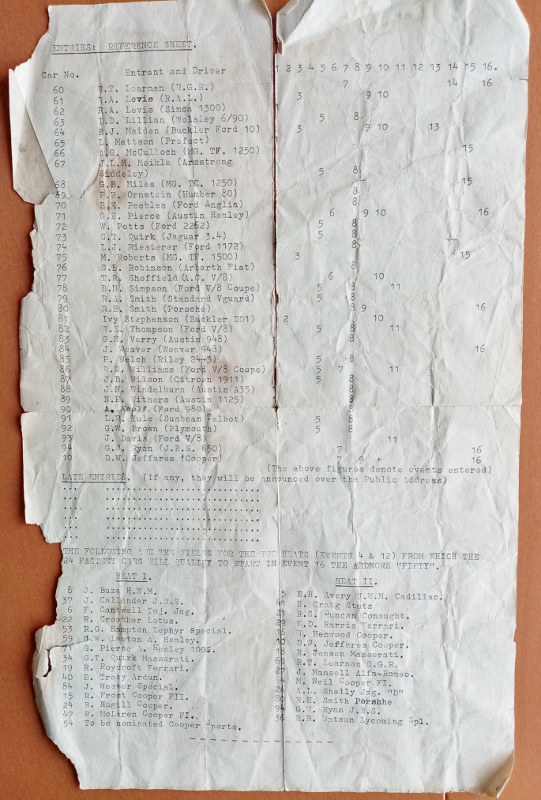 ENTRIES: REFERENCE SHEET.
Car No. Entrant and Driver 1 2 3 4 5 6 7 8 9 10 11 12 13 14 15 16.
60 R.T. Learnan (R.G.R.) 7 14 16
61 R.A. Levis (R.A.L.) 3 9 10
62 R.A. Levis (Simca 1300)
63 D.D. Lillian (Wolsley 6/90) 5 8
64 H.J. Maiden (Buckler Ford 10) 3 9 10 13
65 L. Mattson (Prefect)
66 McCulloch (MG. TF. 1250) 15
67 J.L.M. Meikle (Armstrong
Siddeley) 5 8
68 G.B. Miles (MG. TC. 1250) 15
69 P.R. Ornstein (Humber 80) 8
70 Peebles (Ford Anglia) 8
71 G.H. Pierce (Austin Healey) 6 9 10 16
72 W. Potts (Ford 2262) 5 8
73 G.T. Quirk (Jaguar 3.4) 5 8
74 L.J. Riesterer (Ford 1172) 8
75 M. Roberts (MG. TF. 1500) 3 15
76 S.B. Robinson (Abarth Fiat) 8
77 Shoffield (A.C. V/8) 6 10
78 Simpson (Ford V/8 Coupe) 5 8 11
79 R.A. Smith (Standard Vguard) 5 8
80 R.H. Smith (Porsche) 8 9 16
81 Ivy Stephenson (Buckler DD1) 2 6
82 Thompson (Ford V/8) 5 8 11
83 G.E. Vorry (Austin 948) 8
84 J. Weaver (Weaver 948) 16
85 P. Welch (Riley 24-5) 5 8
86 Williams (Ford V/8 Coupe) 5 7 11
87 J.B. Wilson (Citroen 1911) 5 8
88 J.N. Windelburn (Austin A35) 8
89 N.P. Withers (Austin 1125) 8
90 A. (Ford 980) 8
91 Yule (Sunbeam Talbot) 5 8
92 G.W. Brown (Plymouth) 5 8
93 J. Davis (Ford V/8) 11
94 G.T. Ryan (J.B.S. 650) 7 16
10 D.W. Jeffares (Cooper) 7 9 16
(The above figures denote events entered)
LATE ENTRIES. (If any, they will be announced over the Public Address)
THE FOLLOWING ARE THE FIELDS FOR THE TWO HEATS (EVENTS 4 & 12) FROM WHICH THE
24 FASTEST CARS WILL QUALIFY TO START IN EVENT 16 THE ARDMORE "FIFTY".
HEAT I.
8 J. Buza H.W.M.
37 J. Callendar J.B.S.
6 F. Cantwell Toj. Jag.
22 R. Crowther Lotus.
53 R.G. Hampton Zephyr Special.
59 Lawton A. Healey.
G. Pierce A. Healey 100S.
34 G.T. Quirk Masserati.
19 R. Roycroft Ferrari.
40 D. Tracy Ardun.
84 J. Weaver Special.
15 R. Frost Cooper FII.
24 B. Rogill Cooper.
47 B. McLaren Cooper FI.
54 To be nominated Cooper Sports.
HEAT II.
5 E.H. Avery H.W.M. Cadillac.
H. Craig Stutz
21 R.S. Duncan Connaught.
27 F.D. Harris Ferrari.
16 H. Henwood Cooper.
10 D.W. Jeffares Cooper.
E. Jensen Masserati.
60 R.T. Learnan C.G.R.
J. Mansell Alfa-Romeo.
M. Neil Cooper FI.
A.L. Shelly Jag. "D"
R.H. Smith Porshhe
94 G.T. Ryan J.B.S.
36 Watson Lycoming Spl.